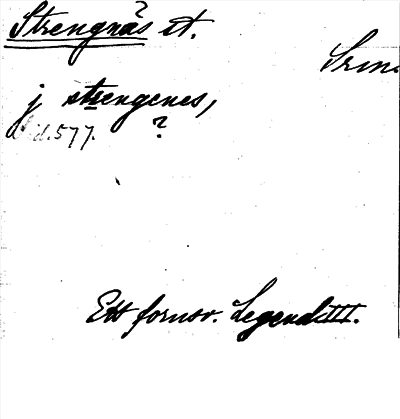 Strengnäs st.
?
Srm.
j strengenes,
?
d. 577.
Ett fornsv. Legend. III.